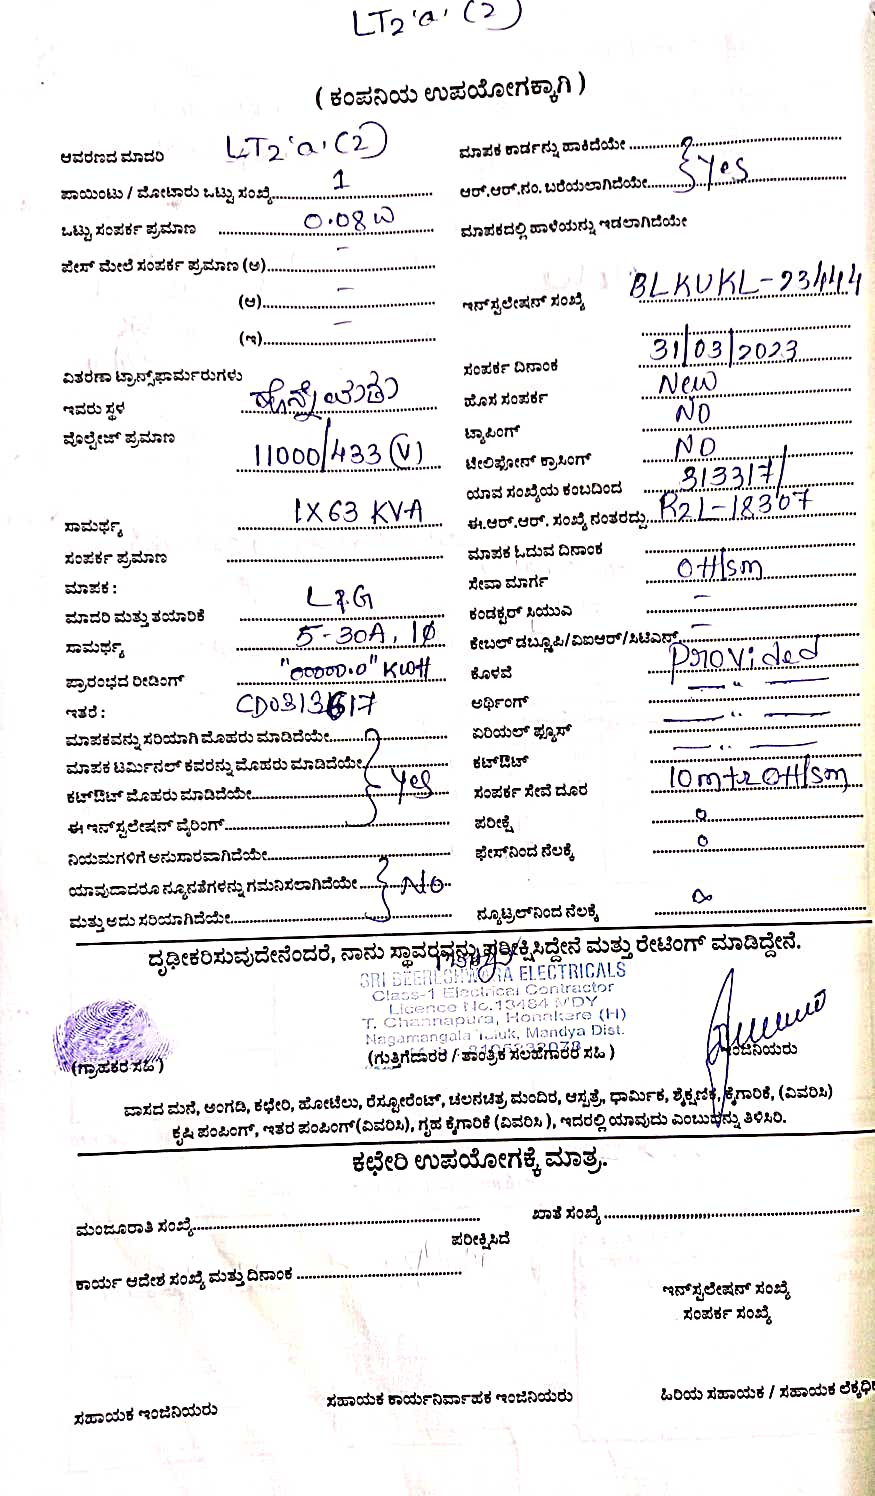 LT2 'a' (2)
( ಕಂಪನಿಯ ಉಪಯೋಗಕ್ಕಾಗಿ )
ಆವರಣದ ಮಾದರಿ LT2 'a' (2)
ಮಾಪಕ ಕಾರ್ಡನ್ನು ಹಾಕಿದೆಯೇ
ಪಾಯಿಂಟು / ಮೋಟಾರು ಒಟ್ಟು ಸಂಖ್ಯೆ 1
ಆರ್.ಆರ್.ನಂ. ಬರೆಯಲಾಗಿದೆಯೇ Yes
ಒಟ್ಟು ಸಂಪರ್ಕ ಪ್ರಮಾಣ 0.08 W
ಮಾಪಕದಲ್ಲಿ ಹಾಳೆಯನ್ನು ಇಡಲಾಗಿದೆಯೇ
ಫೇಸ್ ಮೇಲೆ ಸಂಪರ್ಕ ಪ್ರಮಾಣ (ಅ) -
(ಆ) -
ಇನ್‌ಸ್ಟಲೇಷನ್ ಸಂಖ್ಯೆ BLKUKL-23444
(ಇ) -
ವಿತರಣಾ ಟ್ರಾನ್ಸ್‌ಫಾರ್ಮರುಗಳು
ಸಂಪರ್ಕ ದಿನಾಂಕ 31/03/2023
ಇವರು ಸ್ಥಳ
ಹೊಸ ಸಂಪರ್ಕ New
ವೊಲ್ಟೇಜ್ ಪ್ರಮಾಣ 11000/433 (V)
ಟ್ಯಾಪಿಂಗ್ NO
ಟೆಲಿಫೋನ್ ಕ್ರಾಸಿಂಗ್ NO
ಯಾವ ಸಂಖ್ಯೆಯ ಕಂಬದಿಂದ 313317/
ಸಾಮರ್ಥ್ಯ 1X63 KVA
ಈ.ಆರ್.ಆರ್. ಸಂಖ್ಯೆ ನಂತರದ್ದು R2L-18307
ಸಂಪರ್ಕ ಪ್ರಮಾಣ
ಮಾಪಕ ಓದುವ ದಿನಾಂಕ
ಮಾಪಕ :
ಸೇವಾ ಮಾರ್ಗ OH/SM
ಮಾದರಿ ಮತ್ತು ತಯಾರಿಕೆ L&G
ಕಂಡಕ್ಟರ್ ಸಿಯುವಿ -
ಸಾಮರ್ಥ್ಯ 5-30A, 1Ø
ಕೇಬಲ್ ಡಬ್ಲ್ಯೂಪಿ/ವಿಐಆರ್/ಸಿಟಿಎಸ್ -
ಪ್ರಾರಂಭದ ರೀಡಿಂಗ್ "00000.0" KWH
ಕೊಳವೆ Provided
ಇತರೆ :
ಅರ್ಥಿಂಗ್ — " —
ಮಾಪಕವನ್ನು ಸರಿಯಾಗಿ ಮೊಹರು ಮಾಡಿದೆಯೇ
ಏರಿಯಲ್ ಫ್ಯೂಸ್ — " —
ಮಾಪಕ ಟರ್ಮಿನಲ್ ಕವರನ್ನು ಮೊಹರು ಮಾಡಿದೆಯೇ
ಕಟ್‌ಔಟ್ — " —
ಕಟ್‌ಔಟ್ ಮೊಹರು ಮಾಡಿದೆಯೇ Yes
ಸಂಪರ್ಕ ಸೇವೆ ದೂರ 10m+2 OH/SM
ಈ ಇನ್‌ಸ್ಟಲೇಷನ್ ವೈರಿಂಗ್
ಪರೀಕ್ಷೆ 0
ನಿಯಮಗಳಿಗೆ ಅನುಸಾರವಾಗಿದೆಯೇ
ಫೇಸ್‌ನಿಂದ ನೆಲಕ್ಕೆ 0
ಯಾವುದಾದರೂ ನ್ಯೂನತೆಗಳನ್ನು ಗಮನಿಸಲಾಗಿದೆಯೇ No
ಮತ್ತು ಅದು ಸರಿಯಾಗಿದೆಯೇ
ನ್ಯೂಟ್ರಲ್‌ನಿಂದ ನೆಲಕ್ಕೆ ∞
ದೃಢೀಕರಿಸುವುದೇನೆಂದರೆ, ನಾನು ಸ್ಥಾವರವನ್ನು ಪರೀಕ್ಷಿಸಿದ್ದೇನೆ ಮತ್ತು ರೇಟಿಂಗ್ ಮಾಡಿದ್ದೇನೆ.
SRI BEERESHWARA ELECTRICALS
Class-1 Electrical Contractor
Licence No.13484 MDY
T. Channapura, Honakere (H)
Nagamangala Taluk, Mandya Dist.
(ಗ್ರಾಹಕರ ಸಹಿ) (ಗುತ್ತಿಗೆದಾರರ / ತಾಂತ್ರಿಕ ಸಲಹೆಗಾರರ ಸಹಿ ) ಇಂಜಿನಿಯರು
ವಾಸದ ಮನೆ, ಅಂಗಡಿ, ಕಛೇರಿ, ಹೋಟೆಲು, ರೆಸ್ಟೋರೆಂಟ್, ಚಲನಚಿತ್ರ ಮಂದಿರ, ಆಸ್ಪತ್ರೆ, ಧಾರ್ಮಿಕ, ಶೈಕ್ಷಣಿಕ, ಕೈಗಾರಿಕೆ, (ವಿವರಿಸಿ)
ಕೃಷಿ ಪಂಪಿಂಗ್, ಇತರ ಪಂಪಿಂಗ್(ವಿವರಿಸಿ), ಗೃಹ ಕೈಗಾರಿಕೆ (ವಿವರಿಸಿ ), ಇದರಲ್ಲಿ ಯಾವುದು ಎಂಬುದನ್ನು ತಿಳಿಸಿರಿ.
ಕಛೇರಿ ಉಪಯೋಗಕ್ಕೆ ಮಾತ್ರ.
ಮಂಜೂರಾತಿ ಸಂಖ್ಯೆ ಖಾತೆ ಸಂಖ್ಯೆ
ಪರೀಕ್ಷಿಸಿದೆ
ಕಾರ್ಯ ಆದೇಶ ಸಂಖ್ಯೆ ಮತ್ತು ದಿನಾಂಕ
ಇನ್‌ಸ್ಟಲೇಷನ್ ಸಂಖ್ಯೆ
ಸಂಪರ್ಕ ಸಂಖ್ಯೆ
ಸಹಾಯಕ ಇಂಜಿನಿಯರು ಸಹಾಯಕ ಕಾರ್ಯನಿರ್ವಾಹಕ ಇಂಜಿನಿಯರು ಹಿರಿಯ ಸಹಾಯಕ / ಸಹಾಯಕ ಲೆಕ್ಕಾಧಿಕ